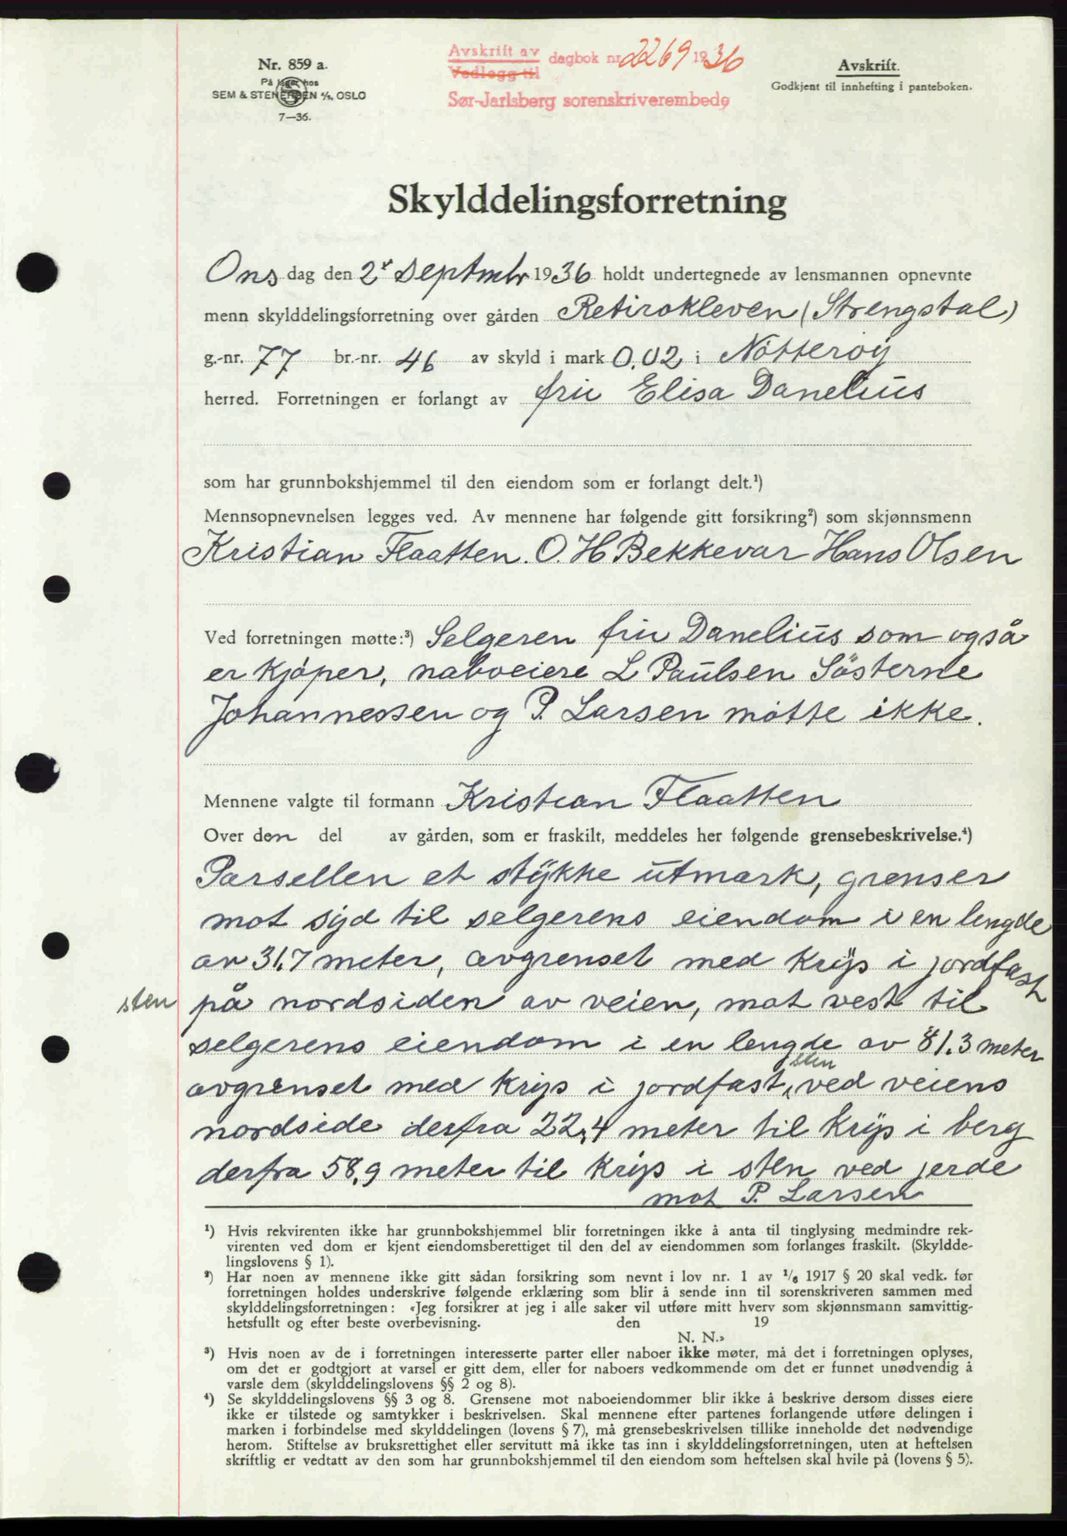 Nr. 859 a.
På lager hos
SEM & STENERSEN A/S, OSLO
7—36.
Avskrift av
Vedlegg til
dagbok nr. 2269 1936
Sør-Jarlsberg sorenskriverembede
Avskrift.
Godkjent til innhefting i panteboken.
Skylddelingsforretning
Ons dag den 2. Septmbr 1936 holdt undertegnede av lensmannen opnevnte
menn skylddelingsforretning over gården Retirokleven (Strengsdal)
g.-nr. 77 br.-nr. 46 av skyld i mark 0.02 i Nøtterøy
herred. Forretningen er forlangt av fru Elisa Danelius
som har grunnbokshjemmel til den eiendom som er forlangt delt.¹)
Mennsopnevnelsen legges ved. Av mennene har følgende gitt forsikring²) som skjønnsmenn
Kristian Flaatten. O. H Bekkevar Hans Olsen
Ved forretningen møtte:³) Selgeren fru Danelius som også
er kjøper, naboeiere L Paulsen Søsterne
Johannessen og P. Larsen møtte ikke.
Mennene valgte til formann Kristian Flaatten
Over den del av gården, som er fraskilt, meddeles her følgende grensebeskrivelse.⁴)
Parsellen et stykke utmark, grenser
mot syd til selgerens eiendom i en lengde
av 31,7 meter, avgrenset med kryss i jordfast
sten på nordsiden av veien, mot vest til
selgerens eiendom i en lengde av 81.3 meter
avgrenset med kryss i jordfast sten ved veiens
nordside derfra 22,4 meter til kryss i berg
derfra 58,9 meter til kryss i sten ved jerde
mot P. Larsen
¹) Hvis rekvirenten ikke har grunnbokshjemmel blir forretningen ikke å anta til tinglysing medmindre rek-
virenten ved dom er kjent eiendomsberettiget til den del av eiendommen som forlanges fraskilt. (Skyldde-
lingslovens § 1).
²) Har noen av mennene ikke gitt sådan forsikring som nevnt i lov nr. 1 av 1/6 1917 § 20 skal vedk. før
forretningen holdes underskrive følgende erklæring som blir å sende inn til sorenskriveren sammen med
skylddelingsforretningen: «Jeg forsikrer at jeg i alle saker vil utføre mitt hverv som skjønnsmann samvittig-
hetsfullt og efter beste overbevisning. den 19
N. N.»
³) Hvis noen av de i forretningen interesserte parter eller naboer ikke møter, må det i forretningen oplyses,
om det er godtgjort at varsel er gitt dem, eller for naboers vedkommende om det er funnet unødvendig å
varsle dem (skylddelingslovens §§ 2 og 8).
⁴) Se skylddelingslovens §§ 3 og 8. Grensene mot naboeiendommer blir ikke å beskrive dersom disses eiere
ikke er tilstede og samtykker i beskrivelsen. Skal mennene efter partenes forlangende utføre delingen i
marken i forbindelse med skylddelingen (lovens § 7), må grensebeskrivelsen tillike inneholde det nødvendige
herom. Stiftelse av bruksrettighet eller servitutt må ikke tas inn i skylddelingsforretningen, uten at heftelsen
skriftlig er vedtatt av den som har grunnbokshjemmel til den eiendom som heftelsen skal hvile på (lovens § 5).